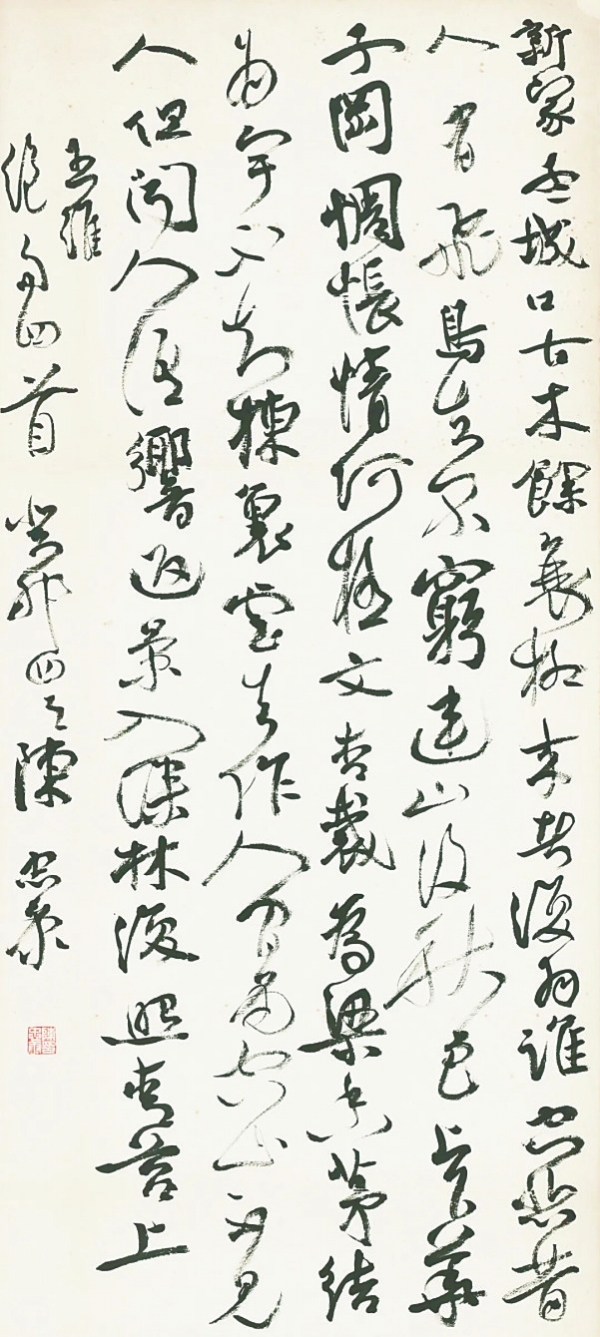 新家孟城口古木餘衰柳來者復為誰空悲昔
人有飛鳥去不窮連山復秋色上下華
子岡惆悵情何極文杏裁為梁香茅結
為宇不知棟裏雲去作人間雨空山不見
人但聞人語響返景入深林復照青苔上
王維
絕句四首 癸卯四之 陳忠康